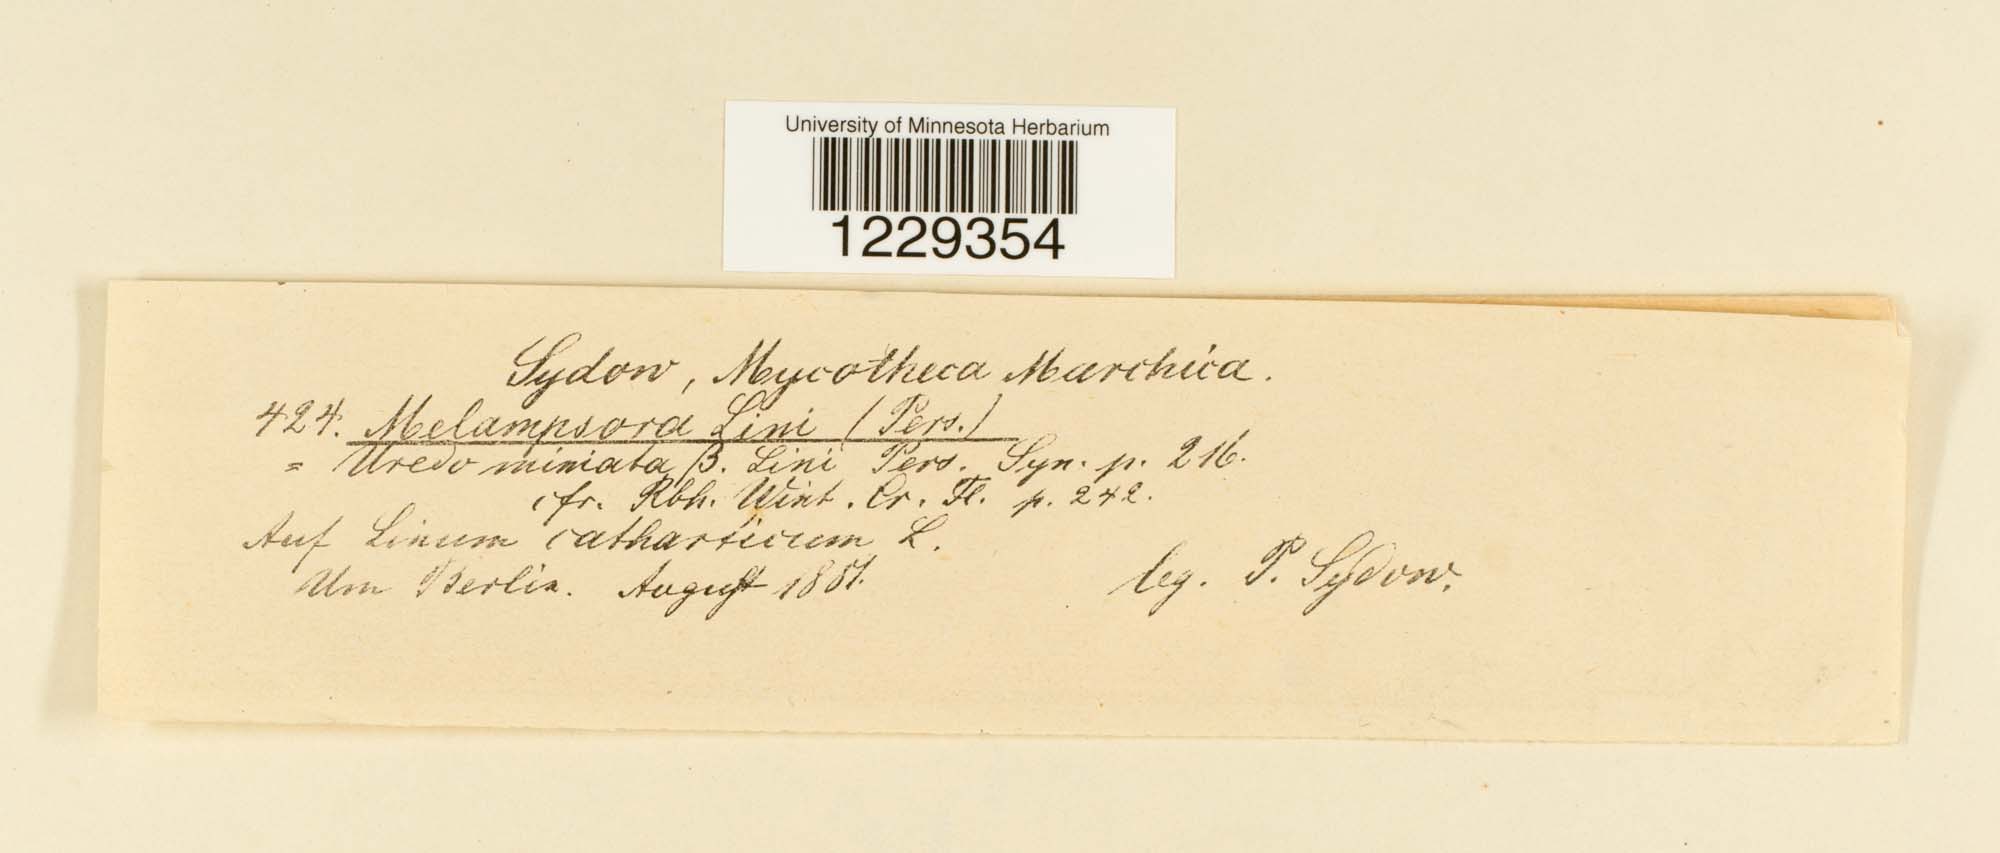 University of Minnesota Herbarium
1229354
Sydow, Mycotheca Marchica.
424. Melampsora Lini (Pers.)
= Uredo miniata β. Lini Pers. Syn. p. 216.
cfr. Rbh. Wint. Cr. Fl. p. 242.
Auf Linum catharticum L.
Um Berlin. August 1881.
leg. P. Sydow.